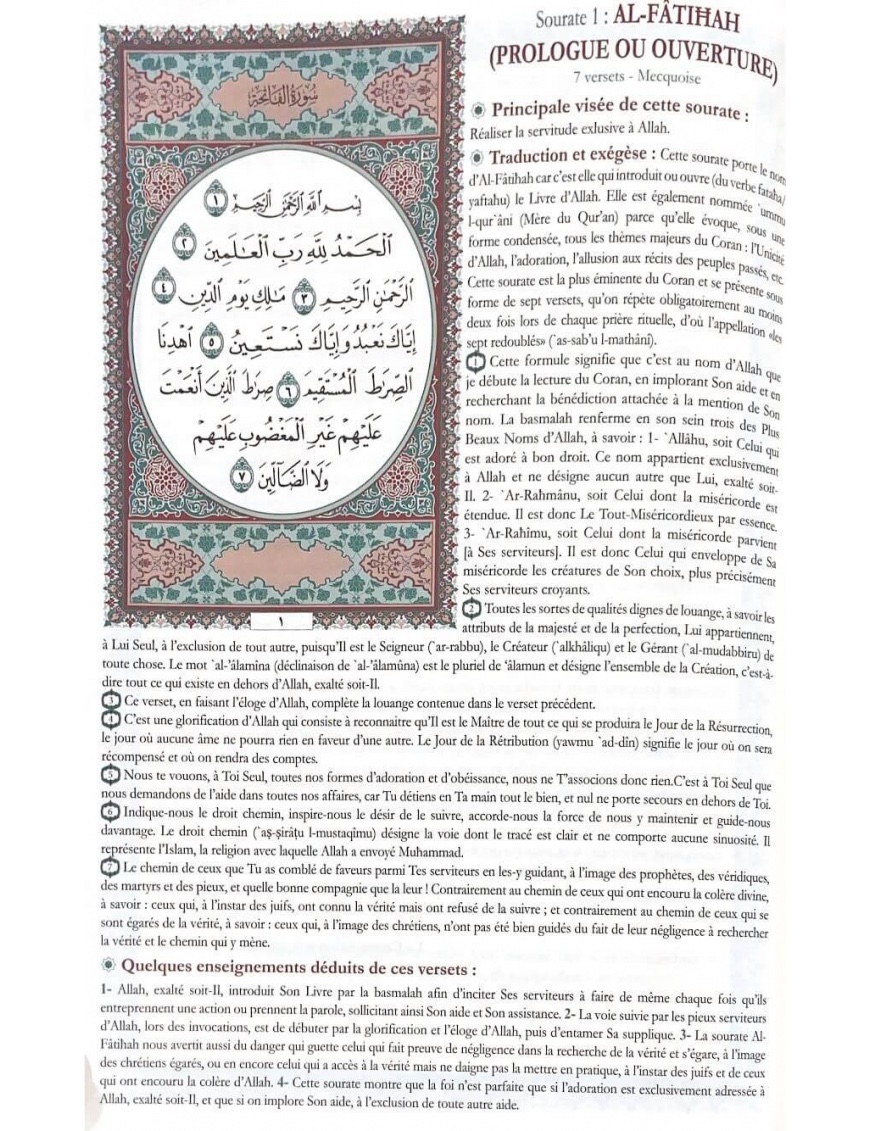 سُورَةُ الفَاتِحَةِ
بِسْمِ اللَّهِ الرَّحْمَٰنِ الرَّحِيمِ ١
الْحَمْدُ لِلَّهِ رَبِّ الْعَالَمِينَ ٢
الرَّحْمَٰنِ الرَّحِيمِ ٣ مَالِكِ يَوْمِ الدِّينِ ٤
إِيَّاكَ نَعْبُدُ وَإِيَّاكَ نَسْتَعِينُ ٥ اهْدِنَا
الصِّرَاطَ الْمُسْتَقِيمَ ٦ صِرَاطَ الَّذِينَ أَنْعَمْتَ
عَلَيْهِمْ غَيْرِ الْمَغْضُوبِ عَلَيْهِمْ
وَلَا الضَّالِّينَ ٧
١
Sourate 1 : AL-FÂTIĦAH
(PROLOGUE OU OUVERTURE)
7 versets - Mecquoise
Principale visée de cette sourate :
Réaliser la servitude exlusive à Allah.
Traduction et exégèse : Cette sourate porte le nom
d'Al-Fâtihah car c'est elle qui introduit ou ouvre (du verbe fataha/
yaftahu) le Livre d'Allah. Elle est également nommée `ummu
l-qur`âni (Mère du Qur'an) parce qu'elle évoque, sous une
forme condensée, tous les thèmes majeurs du Coran : l'Unicité
d'Allah, l'adoration, l'allusion aux récits des peuples passés, etc.
Cette sourate est la plus éminente du Coran et se présente sous
forme de sept versets, qu'on répète obligatoirement au moins
deux fois lors de chaque prière rituelle, d'où l'appellation «les
sept redoublés» (`as-sab'u l-mathânî).
1 Cette formule signifie que c'est au nom d'Allah que
je débute la lecture du Coran, en implorant Son aide et en
recherchant la bénédiction attachée à la mention de Son
nom. La basmalah renferme en son sein trois des Plus
Beaux Noms d'Allah, à savoir : 1- `Allâhu, soit Celui qui
est adoré à bon droit. Ce nom appartient exclusivement
à Allah et ne désigne aucun autre que Lui, exalté soit-
Il. 2- `Ar-Rahmânu, soit Celui dont la miséricorde est
étendue. Il est donc Le Tout-Miséricordieux par essence.
3- `Ar-Rahîmu, soit Celui dont la miséricorde parvient
[à Ses serviteurs]. Il est donc Celui qui enveloppe de Sa
miséricorde les créatures de Son choix, plus précisément
Ses serviteurs croyants.
2 Toutes les sortes de qualités dignes de louange, à savoir les
attributs de la majesté et de la perfection, Lui appartiennent,
à Lui Seul, à l'exclusion de tout autre, puisqu'Il est le Seigneur (`ar-rabbu), le Créateur (`alkhâliqu) et le Gérant (`al-mudabbiru) de
toute chose. Le mot `al-'âlamîna (déclinaison de `al-'âlamûna) est le pluriel de 'âlamun et désigne l'ensemble de la Création, c'est-à-
dire tout ce qui existe en dehors d'Allah, exalté soit-Il.
3 Ce verset, en faisant l'éloge d'Allah, complète la louange contenue dans le verset précédent.
4 C'est une glorification d'Allah qui consiste à reconnaitre qu'Il est le Maître de tout ce qui se produira le Jour de la Résurrection,
le jour où aucune âme ne pourra rien en faveur d'une autre. Le Jour de la Rétribution (yawmu `ad-dîn) signifie le jour où on sera
récompensé et où on rendra des comptes.
5 Nous te vouons, à Toi Seul, toutes nos formes d'adoration et d'obéissance, nous ne T'associons donc rien.C'est à Toi Seul que
nous demandons de l'aide dans toutes nos affaires, car Tu détiens en Ta main tout le bien, et nul ne porte secours en dehors de Toi.
6 Indique-nous le droit chemin, inspire-nous le désir de le suivre, accorde-nous la force de nous y maintenir et guide-nous
davantage. Le droit chemin (`aṣ-ṣirâṭu l-mustaqîmu) désigne la voie dont le tracé est clair et ne comporte aucune sinuosité. Il
représente l'Islam, la religion avec laquelle Allah a envoyé Muhammad.
7 Le chemin de ceux que Tu as comblé de faveurs parmi Tes serviteurs en les-y guidant, à l'image des prophètes, des véridiques,
des martyrs et des pieux, et quelle bonne compagnie que la leur ! Contrairement au chemin de ceux qui ont encouru la colère divine,
à savoir : ceux qui, à l'instar des juifs, ont connu la vérité mais ont refusé de la suivre ; et contrairement au chemin de ceux qui se
sont égarés de la vérité, à savoir : ceux qui, à l'image des chrétiens, n'ont pas été bien guidés du fait de leur négligence à rechercher
la vérité et le chemin qui y mène.
Quelques enseignements déduits de ces versets :
1- Allah, exalté soit-Il, introduit Son Livre par la basmalah afin d'inciter Ses serviteurs à faire de même chaque fois qu'ils
entreprennent une action ou prennent la parole, sollicitant ainsi Son aide et Son assistance. 2- La voie suivie par les pieux serviteurs
d'Allah, lors des invocations, est de débuter par la glorification et l'éloge d'Allah, puis d'entamer Sa supplique. 3- La sourate Al-
Fâtihah nous avertit aussi du danger qui guette celui qui fait preuve de négligence dans la recherche de la vérité et s'égare, à l'image
des chrétiens égarés, ou en encore celui qui a accès à la vérité mais ne daigne pas la mettre en pratique, à l'instar des juifs et de ceux
qui ont encouru la colère d'Allah. 4- Cette sourate montre que la foi n'est parfaite que si l'adoration est exclusivement adressée à
Allah, exalté soit-Il, et que si on implore Son aide, à l'exclusion de toute autre aide.